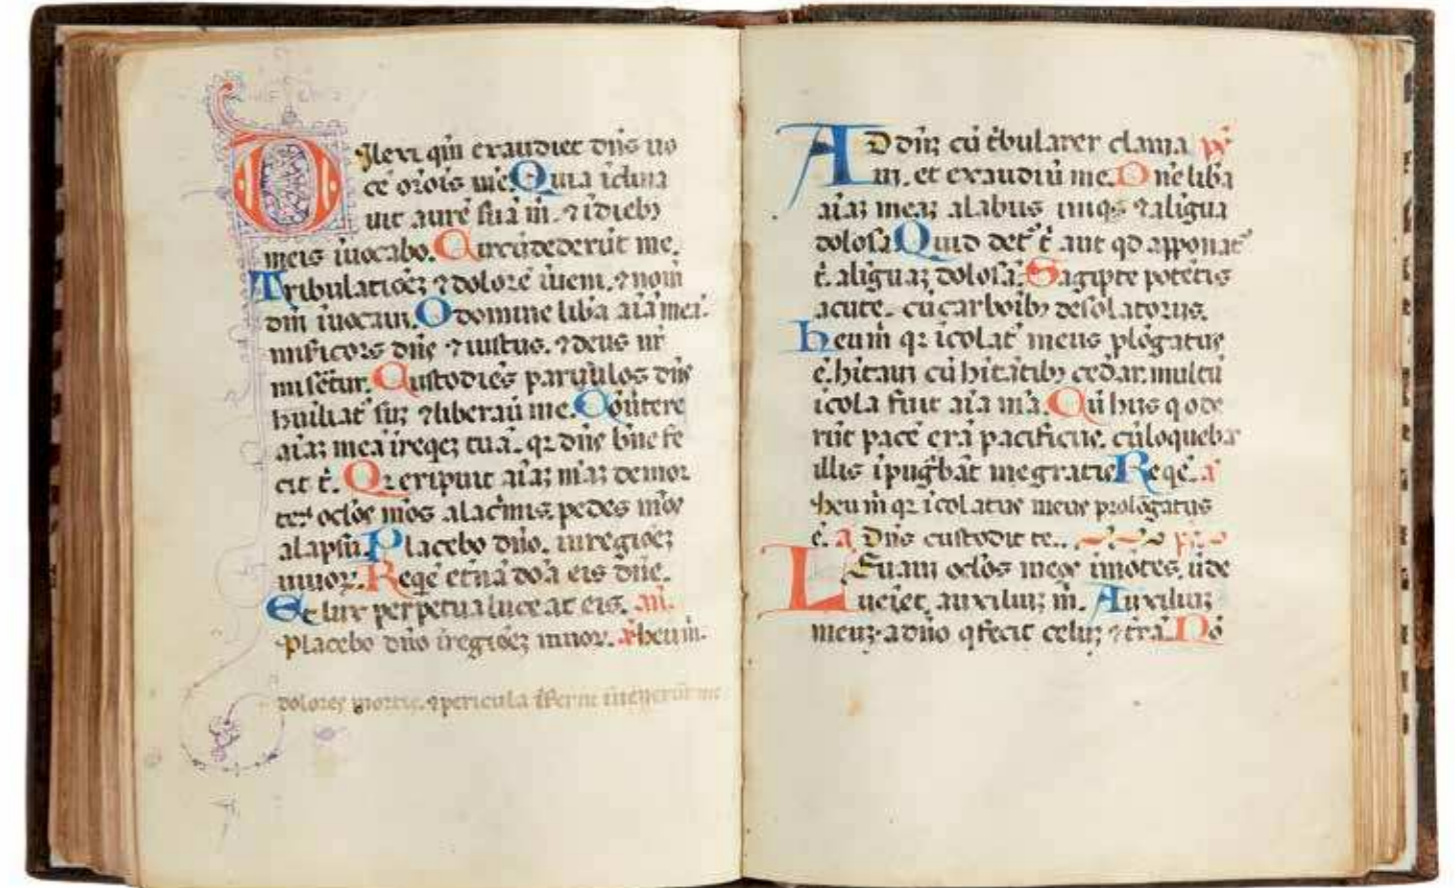 Dilexi qm̄ exaudiet dn̄s uo
cē or̄ois mē. Quia īclina
uit aurē suā m̄. ⁊ ī dieb⁊
meis īuocabo. Circūdederūt me.
Tribulatiōeȝ ⁊ dolorē īueni. ⁊ nom̄
dn̄i īuocaui. O domine lib̄a aīā meā.
misericors dn̄s ⁊ iustus. ⁊ deus nr̄
misētur. Custodiēs paruulos dn̄s
humiliat᷒ suȝ ⁊ liberauī me. Cōūtere
aīaȝ meā ī reqeȝ tuā. qȝ dn̄s bn̄e fe
cit t̄. Qȝ eripuit aīaȝ mēaȝ de mor
te oclōs mēos a lac̄mis. pedes mēos
a lapsū. Placebo dn̄o. in regiōeȝ
uiuoꝝ. Reqē et̄nā dōa eis dn̄e.
Et lux perpetua luceat eis. an̄.
Placebo dn̄o ī regiōeȝ uiuoꝝ. a heu m̄.
dolores mortis. ⁊ pericula īferni īuenerūt me
AD dn̄ȝ cū t̄bularer clama ps̄
ui. et exaudiū me. Dn̄e lib̄a
aīaȝ meaȝ a labiis iniqs ⁊ a ligua
dolosa. Quid det᷒ t̄ aut qd apponat᷒
t̄. a liguaȝ dolosā. Sagipte potētis
acute. cū carboib⁊ desolatoriis.
heu m̄ qȝ īcolat᷒ meus plōgatus
ē. hītaui cū hītātib⁊ cedar. multū
īcola fuit aīa mēa. Cū hiis q ode
rūt pacē erā pacificus. cū loquebar
illis īpug̃bāt me gratis. Reqē. a
heu m̄ qȝ īcolatus meus prolōgatus
ē. a Dn̄s custodit te.. ps̄
Leuaui oclōs meos ī mōtes. ūde
ueiet auxiliuȝ m̄. Auxiliuȝ
meuȝ a dn̄o q fecit celuȝ ⁊ t̄rā. Nō